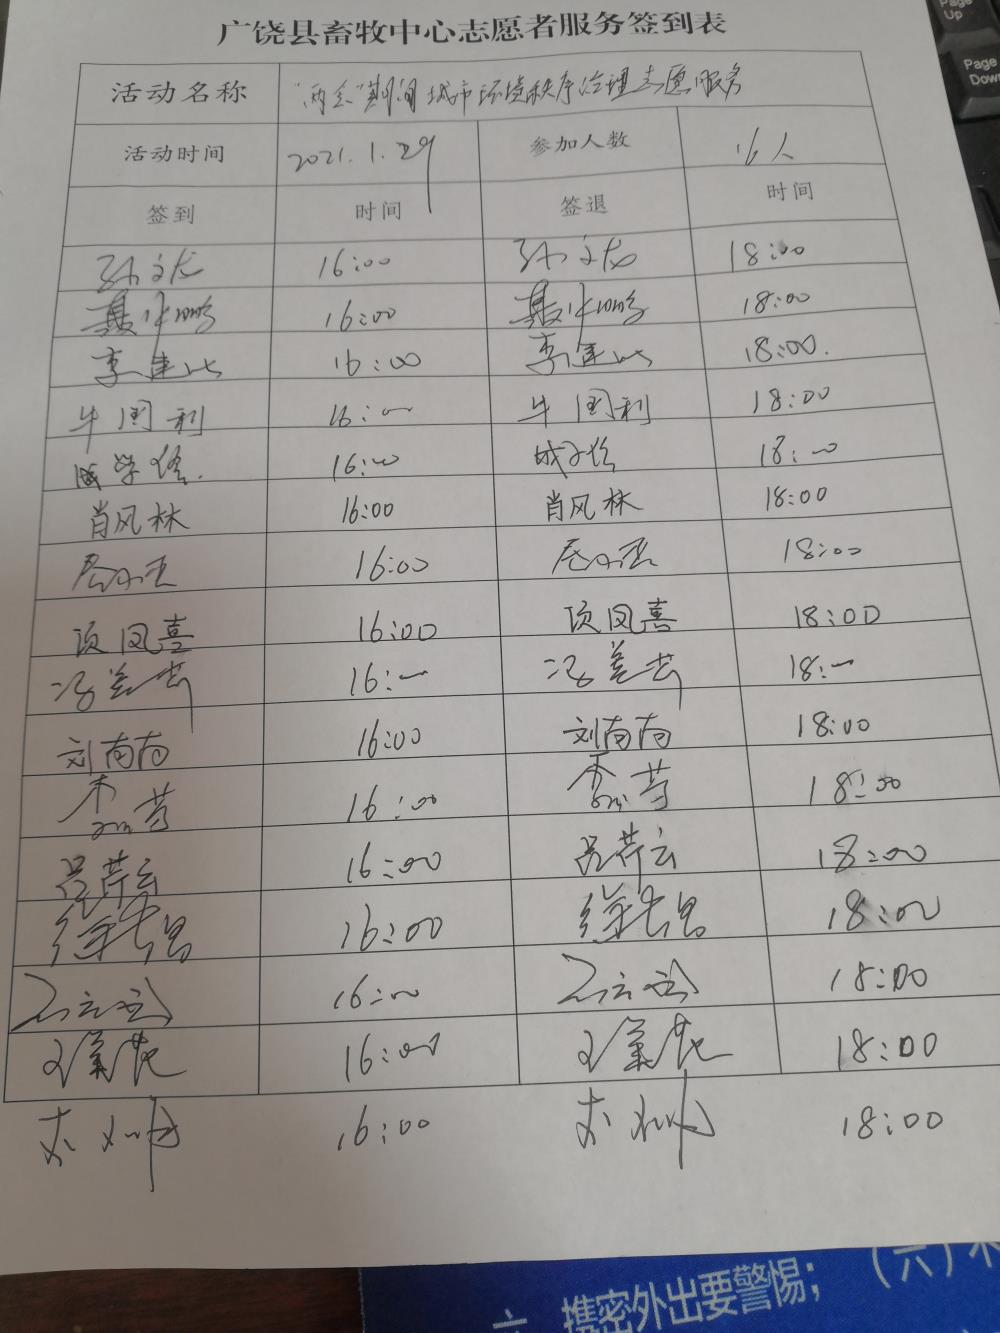 广饶县畜牧中心志愿者服务签到表
活动名称 "两会"期间城市环境秩序治理志愿服务
活动时间 2021.1.29 参加人数 16人
签到 时间 签退 时间
孙文龙 16:00 孙文龙 18:00
聂华鹏 16:00 聂华鹏 18:00
李建 16:00 李建 18:00.
牛国利 16:00 牛国利 18:00
成学 16:00 成 18:00
肖风林 16:00 肖风林 18:00
16:00 18:00
项凤喜 16:00 项凤喜 18:00
冯 16:00 冯 18:00
刘南南 16:00 刘南南 18:00
16:00 18:00
吕荷云 16:00 吕荷云 18:00
徐 16:00 徐 18:00
16:00 18:00
王 16:00 王 18:00
16:00 18:00
Page Up
Page Down
六、携密外出要警惕；（六）